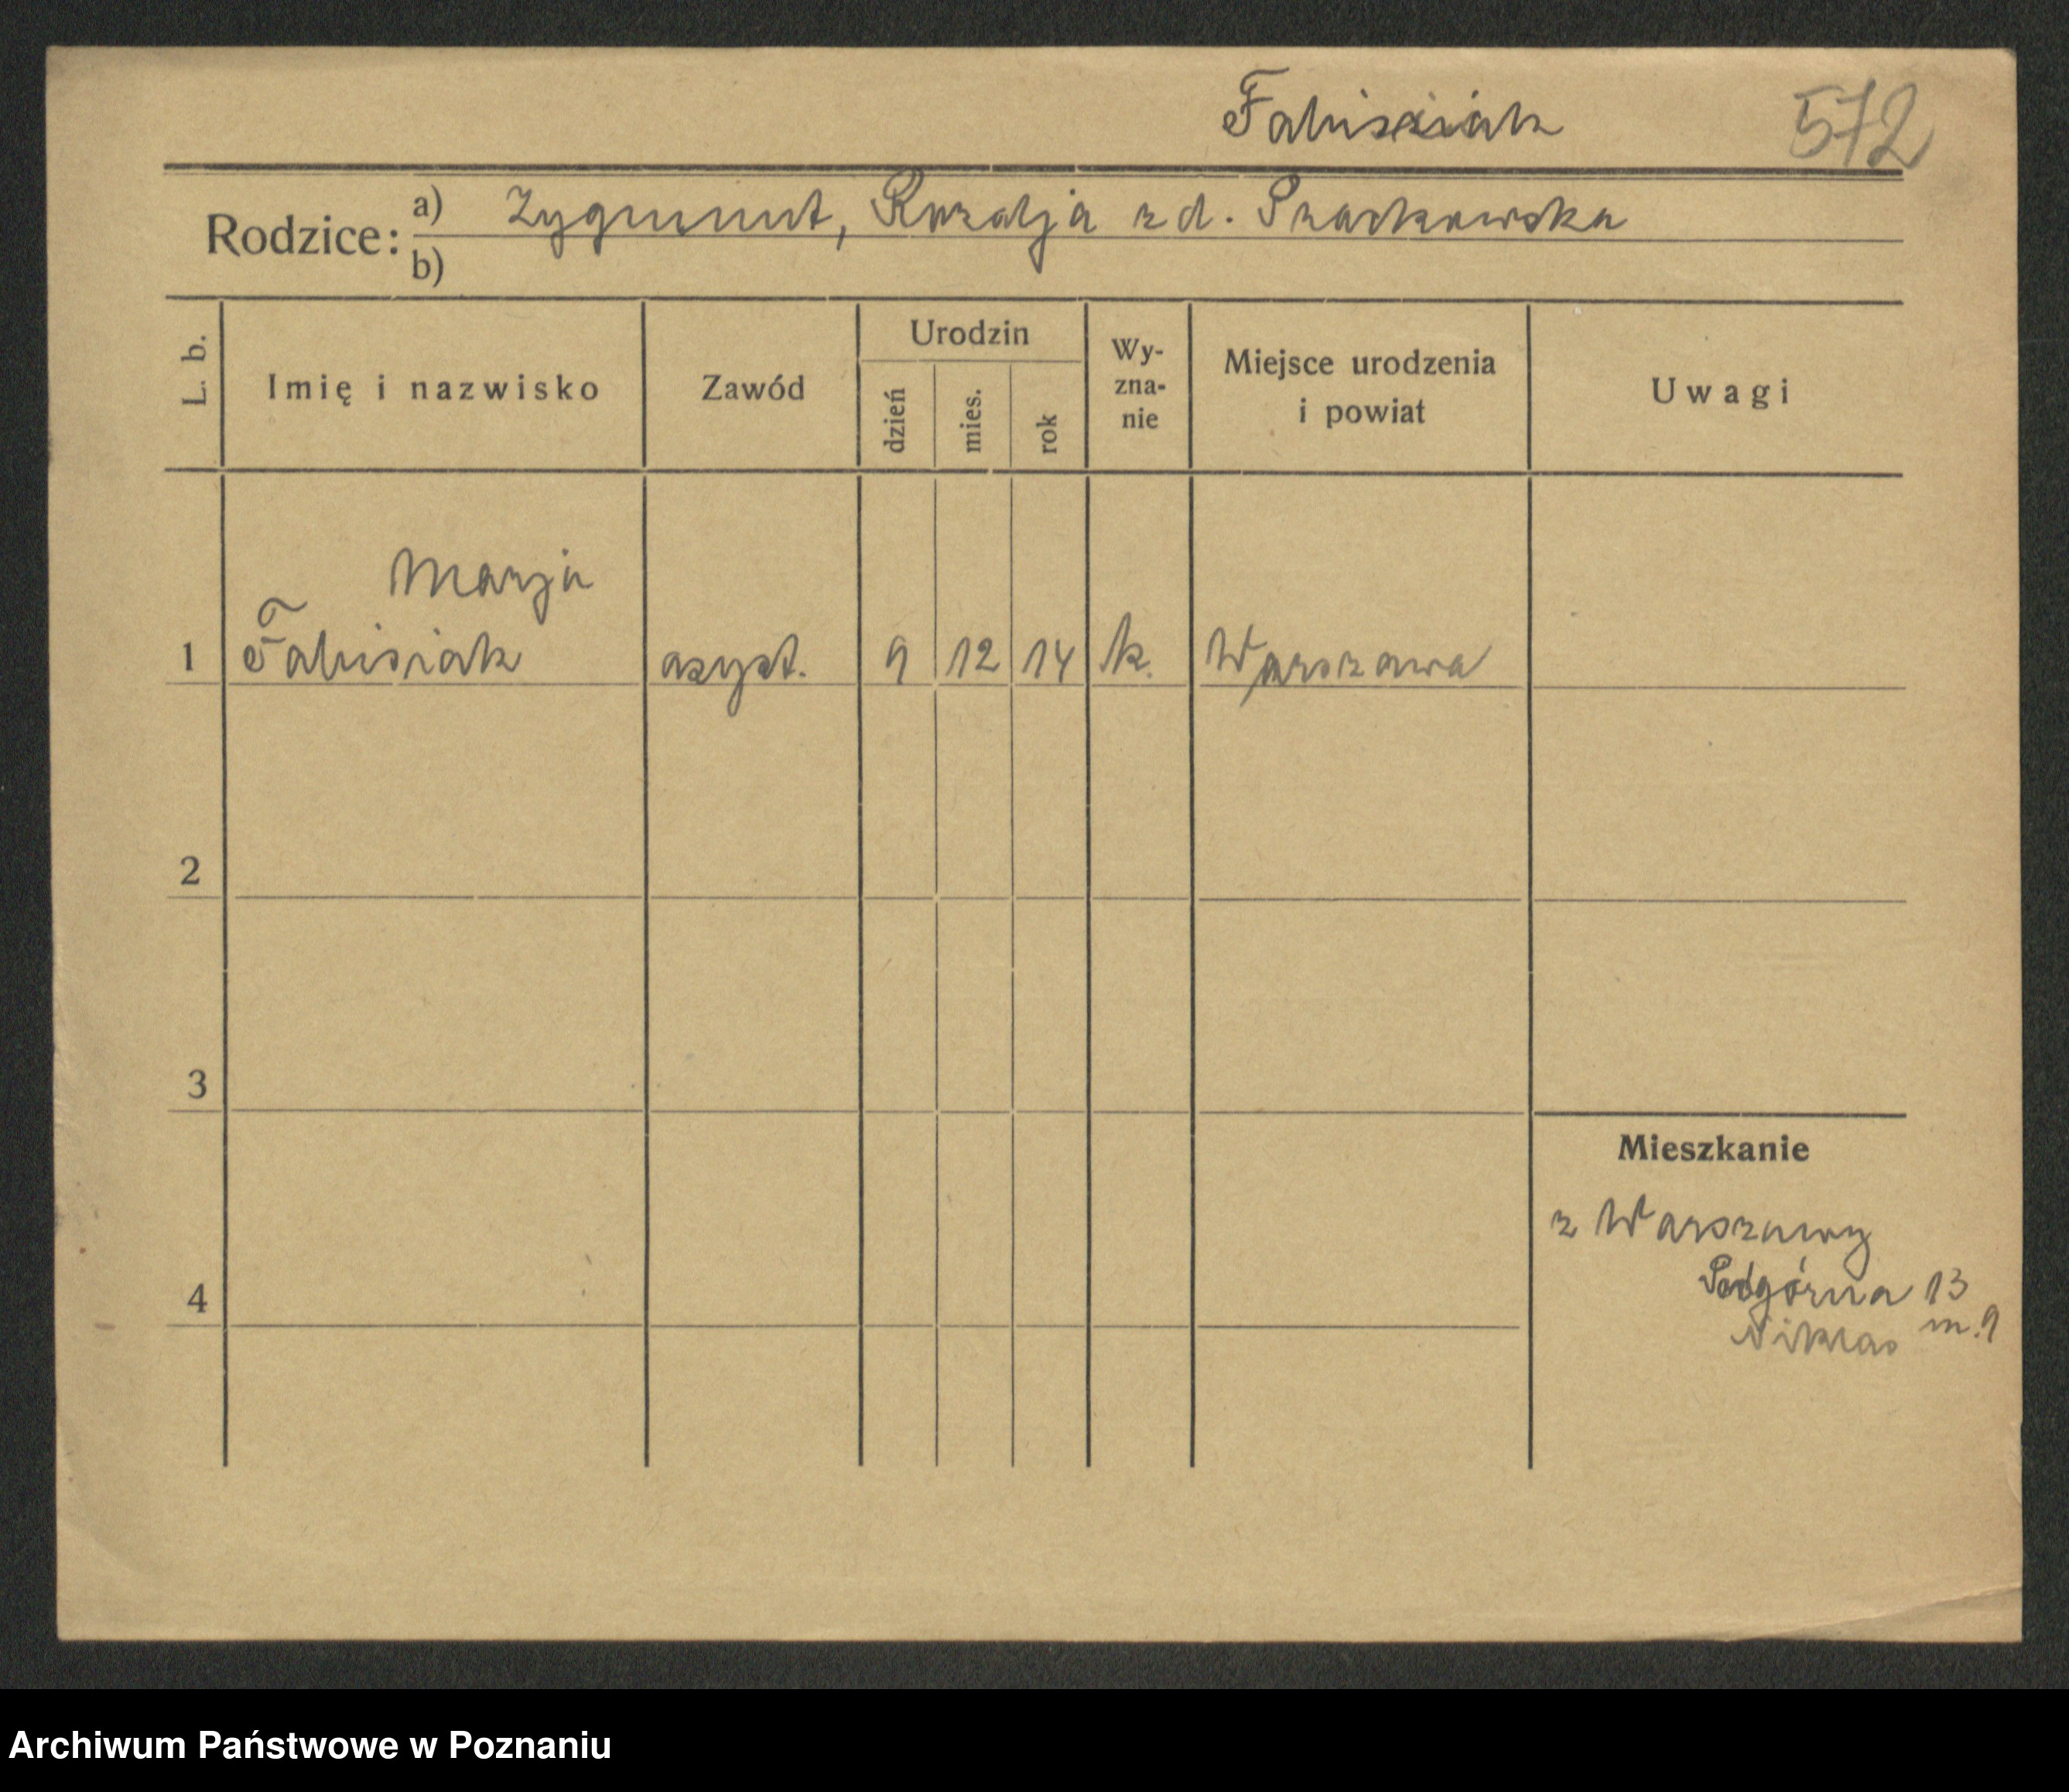 Fabisiak
572
Rodzice: a) Zygmunt, Rozalja z d. Praczkowska
b)
L. b. Imię i nazwisko Zawód Urodzin dzień mies. rok Wy-zna-nie Miejsce urodzenia i powiat Uwagi
Marja
1 Fabisiak asyst. 9 12 14 k. Warszawa
2
3
Mieszkanie
z Warszawy
Podgórna 13
4
m. 9
Archiwum Państwowe w Poznaniu